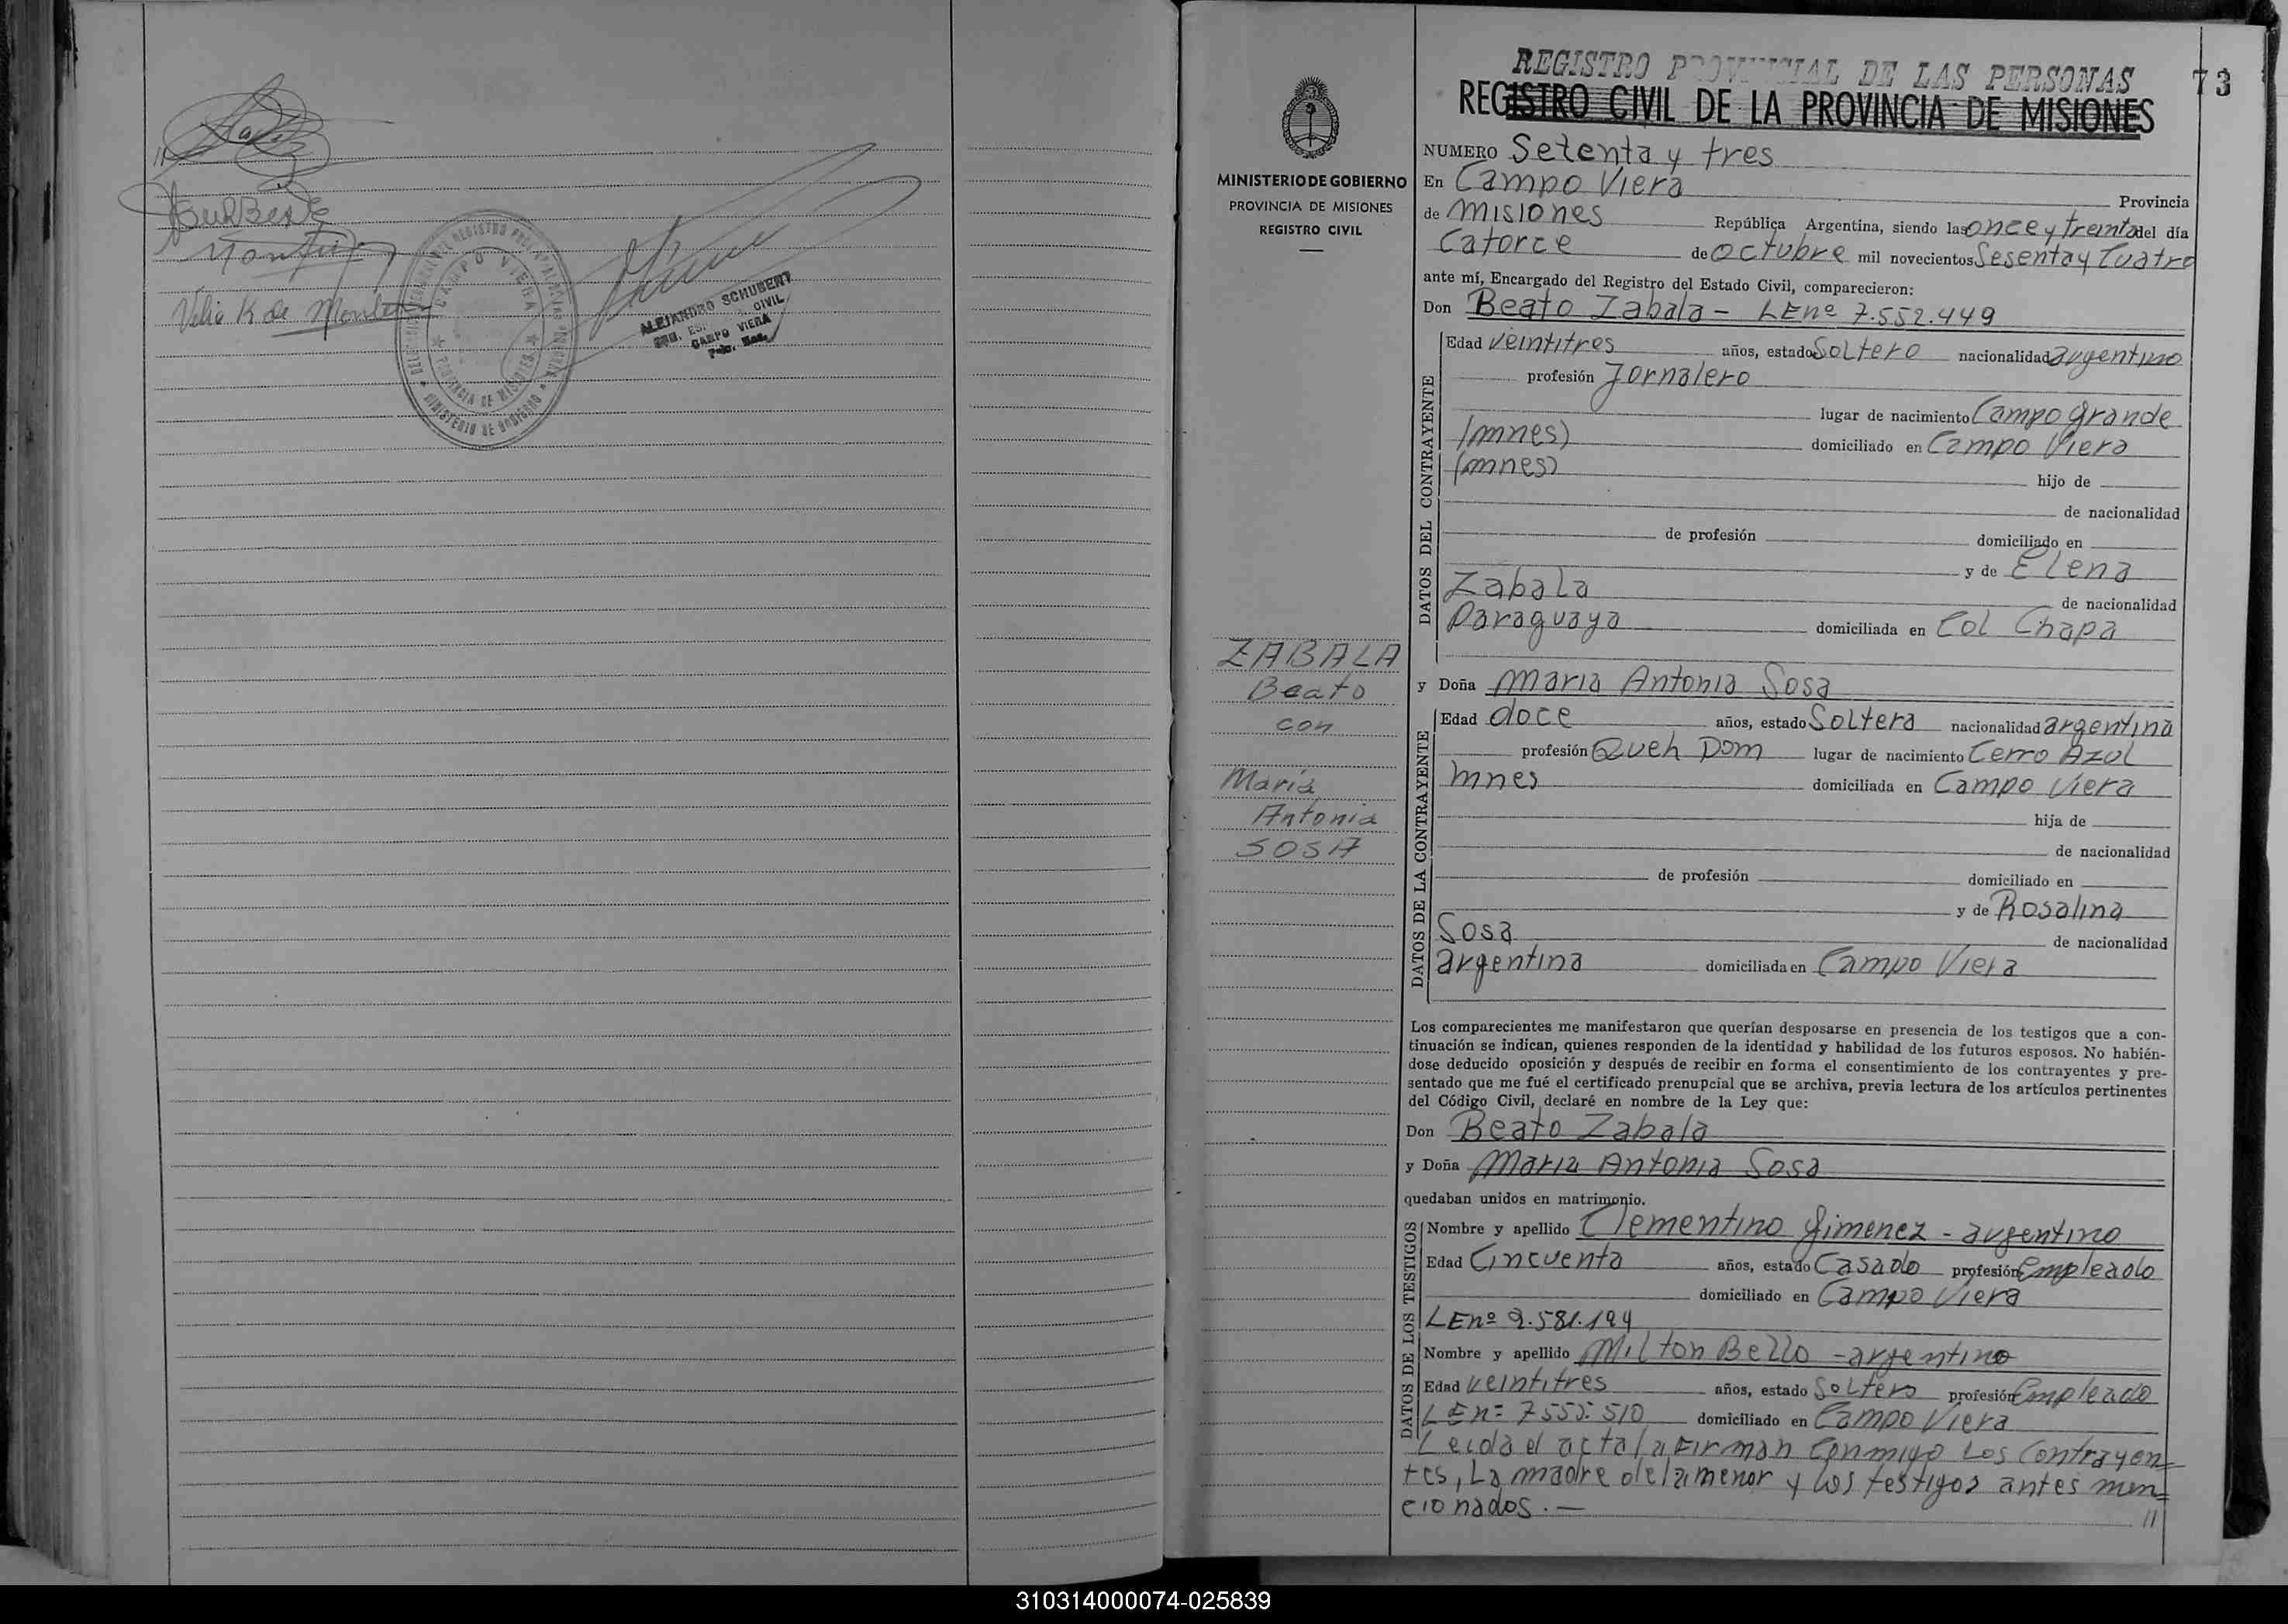 Velia K de
REGISTRO PROVINCIAL
CAMPO VIERA
PROVINCIA DE MISIONES
MINISTERIO DE GOBIERNO
ALEJANDRO SCHUBERT
CIVIL
CAMPO VIERA
REGISTRO PROVINCIAL DE LAS PERSONAS
73
REGISTRO CIVIL DE LA PROVINCIA DE MISIONES
MINISTERIO DE GOBIERNO
PROVINCIA DE MISIONES
REGISTRO CIVIL
NUMERO Setenta y tres
En Campo Viera Provincia
de Misiones República Argentina, siendo las once y treinta del día
Catorce de octubre mil novecientos Sesenta y Cuatro
ante mí, Encargado del Registro del Estado Civil, comparecieron:
Don Beato Zabala - LEnº 7.552.449
DATOS DEL CONTRAYENTE
Edad veintitres años, estado Soltero nacionalidad argentino
profesión Jornalero
lugar de nacimiento Campo grande
(mnes) domiciliado en Campo Viera
(mnes) hijo de
de nacionalidad
de profesión domiciliado en
y de Elena
Zabala de nacionalidad
Paraguaya domiciliada en Col Chapa
ZABALA
Beato
con
María
Antonia
SOSA
y Doña Maria Antonia Sosa
DATOS DE LA CONTRAYENTE
Edad doce años, estado Soltera nacionalidad argentina
profesión Queh Dom lugar de nacimiento Cerro Azul
mnes domiciliada en Campo Viera
hija de
de nacionalidad
de profesión domiciliado en
y de Rosalina
Sosa de nacionalidad
argentina domiciliada en Campo Viera
Los comparecientes me manifestaron que querían desposarse en presencia de los testigos que a con-
tinuación se indican, quienes responden de la identidad y habilidad de los futuros esposos. No habién-
dose deducido oposición y después de recibir en forma el consentimiento de los contrayentes y pre-
sentado que me fué el certificado prenupcial que se archiva, previa lectura de los artículos pertinentes
del Código Civil, declaré en nombre de la Ley que:
Don Beato Zabala
y Doña Maria Antonia Sosa
quedaban unidos en matrimonio.
DATOS DE LOS TESTIGOS
Nombre y apellido Clementino Gimenez - argentino
Edad Cincuenta años, estado Casado profesión Empleado
domiciliado en Campo Viera
LEnº 2.581.194
Nombre y apellido Milton Bello - argentino
Edad veintitres años, estado Soltero profesión Empleado
LEn= 7555.510 domiciliado en Campo Viera
Leida el acta la firman conmigo los contrayen=
tes, La madre de la menor y los testigos antes men=
cionados. —
//
310314000074-025839